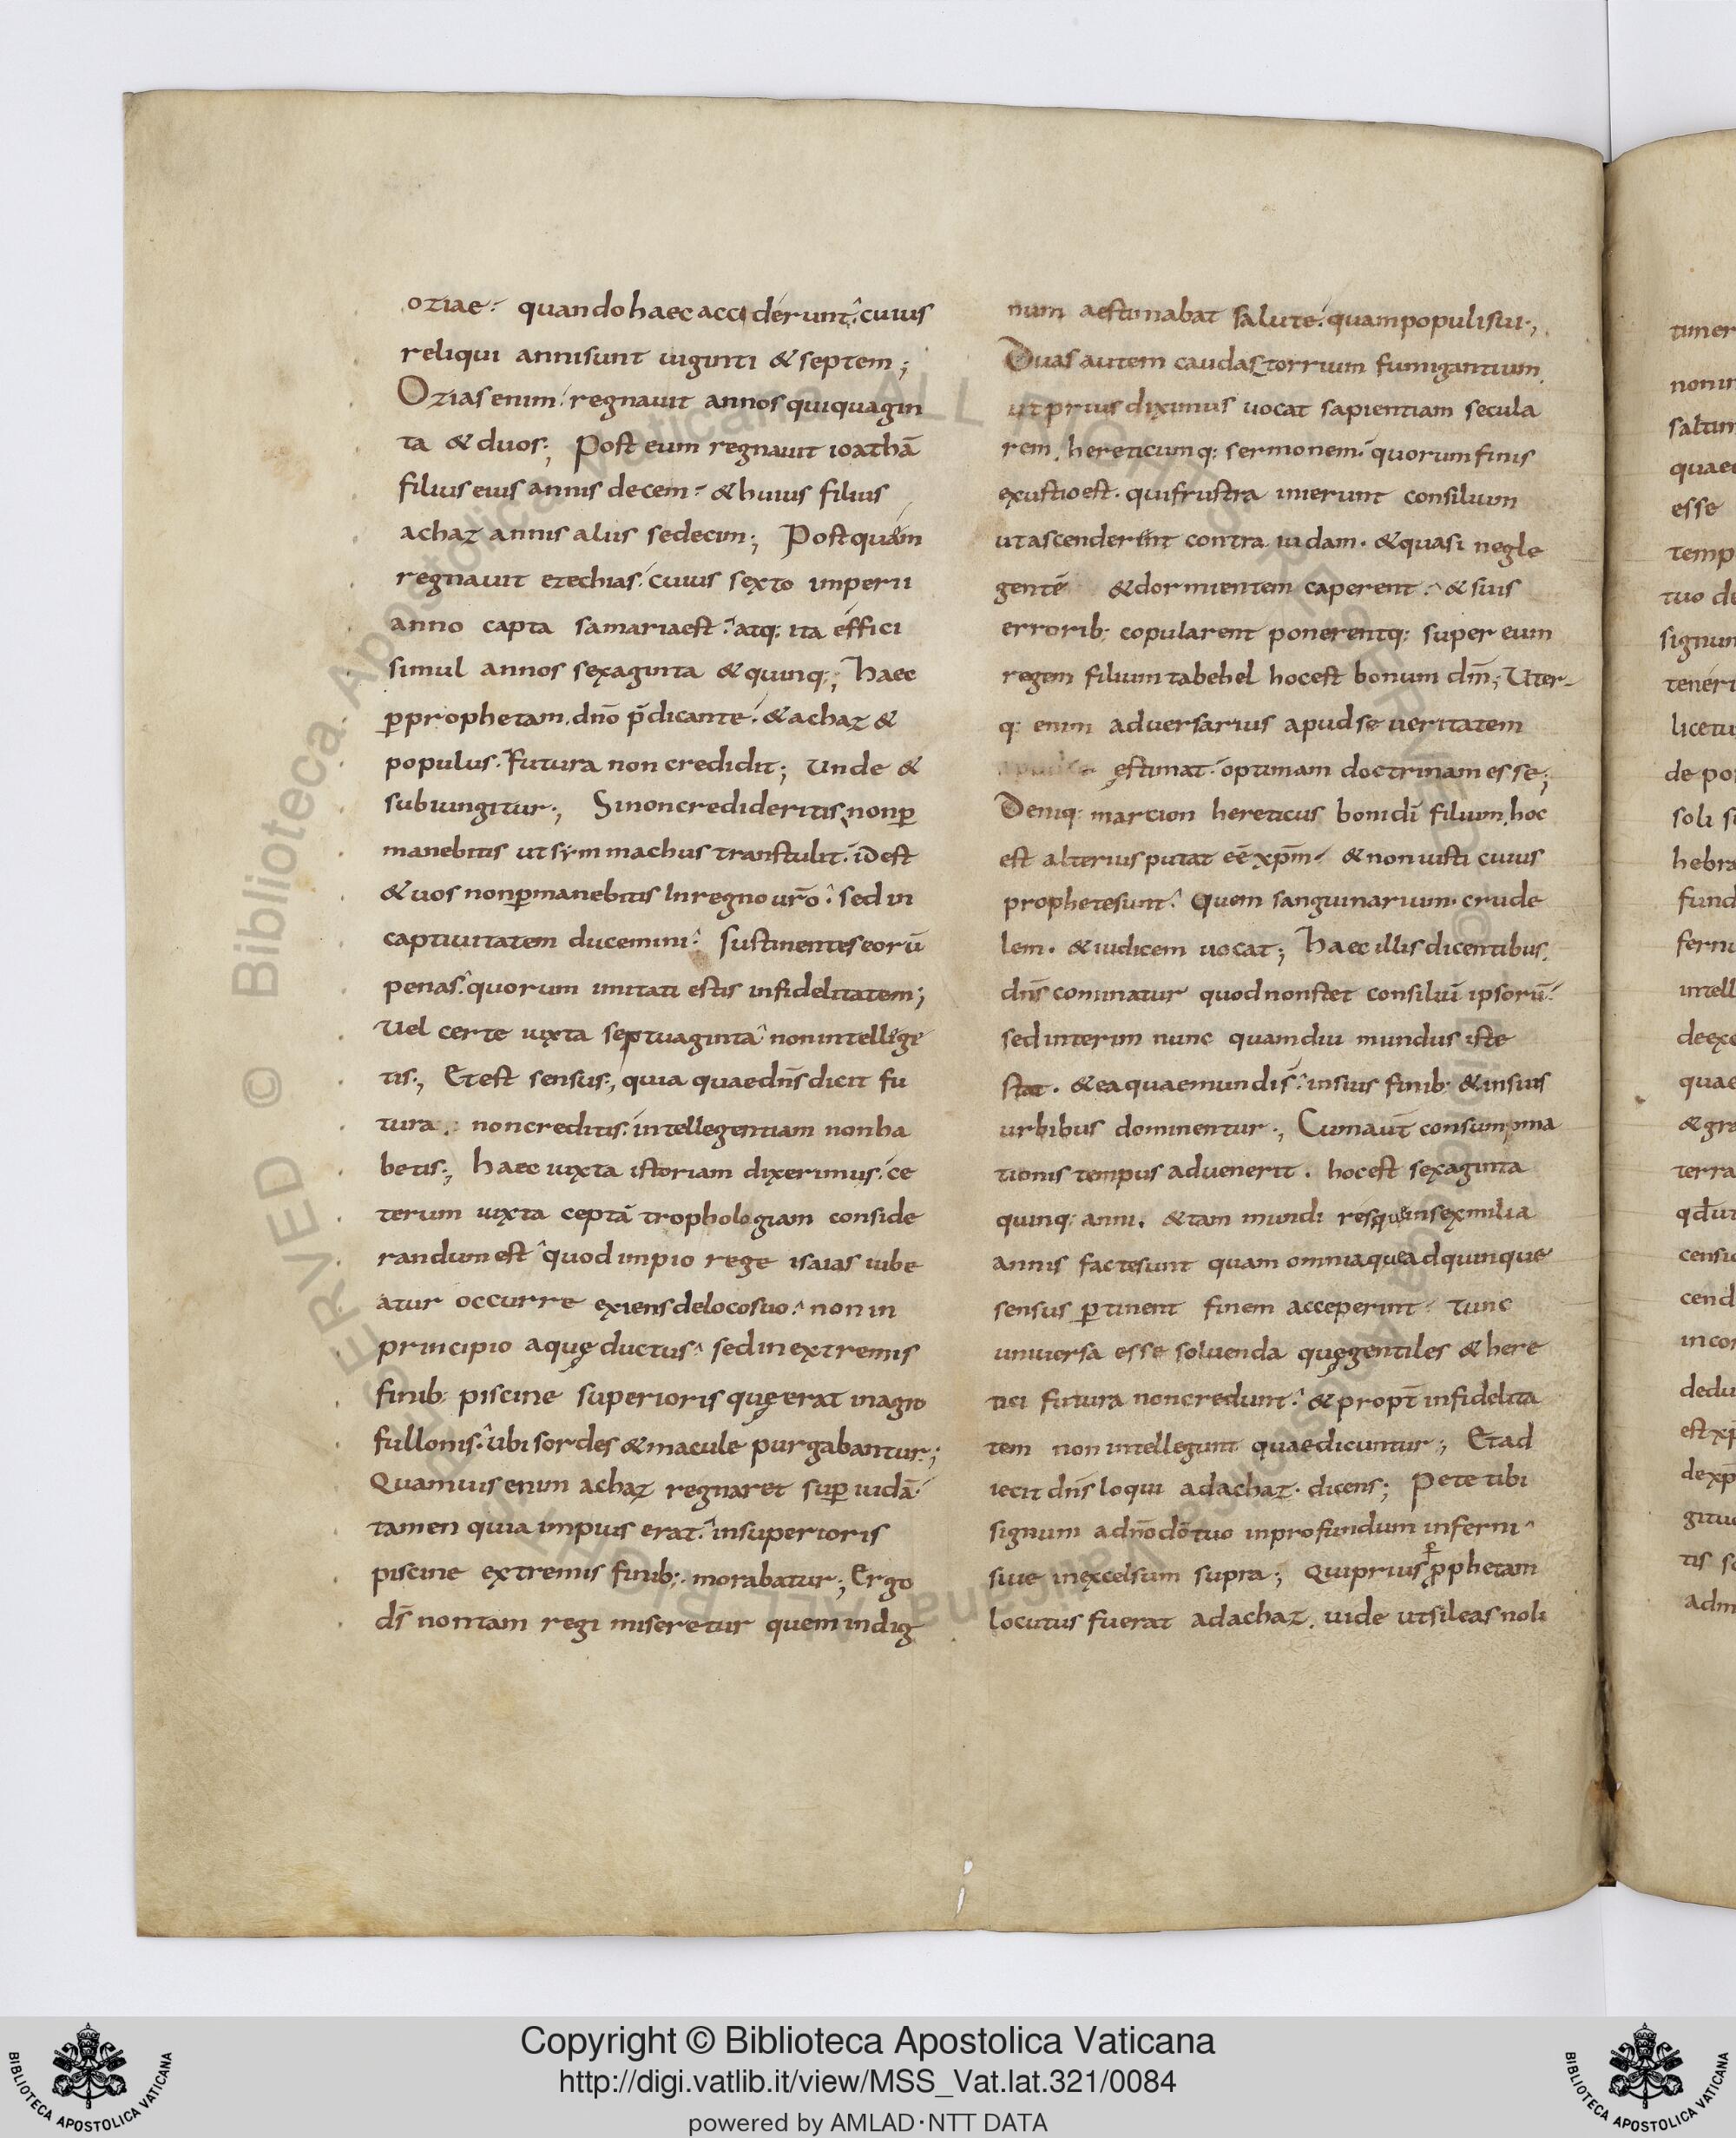 oziae quando haec acciderunt cuius
reliqui anni sunt uiginti & septem;
Ozias enim regnauit annos quiquagin
ta & duos; Post eum regnauit ioathā
filius eius annis decem & huius filius
achaz annis aliis sedecim; Post quam
regnauit ezechias cuius sexto imperii
anno capta samaria est atq: ita effici
simul annos sexaginta & quinq:; haec
ꝑ prophetam. dn̄o p̄dicante & achaz &
populus. Futura non credidit; Unde &
subiungitur; Si non credideritis, nonꝑ
manebitis ut symmachus transtulit. id est
& uos nonꝑmanebitis In regno ur̄o sed in
captiuitatem ducemini sustinentes eorū
penas quorum imitati estis infidelitatem;
Uel certe iuxta septuaginta non intellegi
tis; Et est sensus; quia quae dn̄s dicit fu
tura non creditis. intellegentiam non ha
betis; haec iuxta istoriam dixerimus. ce
terum iuxta ceptā trophologiam conside
randum est quod impio rege isaias iube
atur occurre exiens de loco suo non in
principio aquę ductus sed in extremis
finib: piscine superioris quę erat in agro
fullonis. ubi sordes & macule purgabantur;
Quamuis enim achaz regnaret suꝑ iudā
tamen quia impius erat in superioris
piscine extremis finib: morabatur; Ergo
ds̄ non tam regi miseretur quem indig
num aestimabat salute. quam populi sui;
Duas autem caudas torrium fumigantium
ut prius diximus uocat sapientiam secula
rem. hereticumq: sermonem. quorum finis
exustio est. qui frustra inierunt consilium
ut ascenderint contra iudam. & quasi negle
gentē & dormientem caperent & suis
errorib: copularent ponerentq: super eum
regem filium tabehel hoc est bonum dm̄; Uter-
q: enim aduersarius apud se ueritatem
ęstimat. optimam doctrinam esse;
Deniq: marcion hereticus boni dī filium. hoc
est alterius putat eē xp̄m & non iusti cuius
prophete sunt. Quem sanguinarium. crude
lem. & iudicem uocat; haec illis dicentibus.
dn̄s cominatur quod non stet consiliū ipsorū
sed interim nunc quamdiu mundus iste
stat. & ea quae mundi s̄ in suis finib: & in suis
urbibus dominentur; Cum aut̄ consumpma
tionis tempus aduenerit. hoc est sexaginta
quinq: anni. & tam mundi res quae in sex milia
annis facte sunt quam omnia quead quinque
sensus ꝑtinent finem acceperint tunc
uniuersa esse soluenda quę gentiles & here
tici futura non credunt & propt̄ infidelita
tem non intellegunt quae dicuntur; Et ad
iecit dn̄s loqui ad achaz. dicens; Pete tibi
signum a dn̄o dō tuo in profundum inferni
siue in excelsum supra; Qui prius ꝑ pphetam
locutus fuerat ad achaz. uide ut sileas noli
timer
saltim
esse
temp
tuo de
signum
licetu
de po
soli s
hebra
fund
intell
de exc
quae
& gra
terra
censi
cend
in cor
dedu
est xp̄
de xp̄
gitu
adm
© Biblioteca Apostolica Vaticana. ALL RIGHTS RESERVED © Biblioteca Apostolica Vaticana. ALL RIGHTS RESERVED
Copyright © Biblioteca Apostolica Vaticana
http://digi.vatlib.it/view/MSS_Vat.lat.321/0084
powered by AMLAD·NTT DATA
BIBLIOTECA APOSTOLICA VATICANA
BIBLIOTECA APOSTOLICA VATICANA